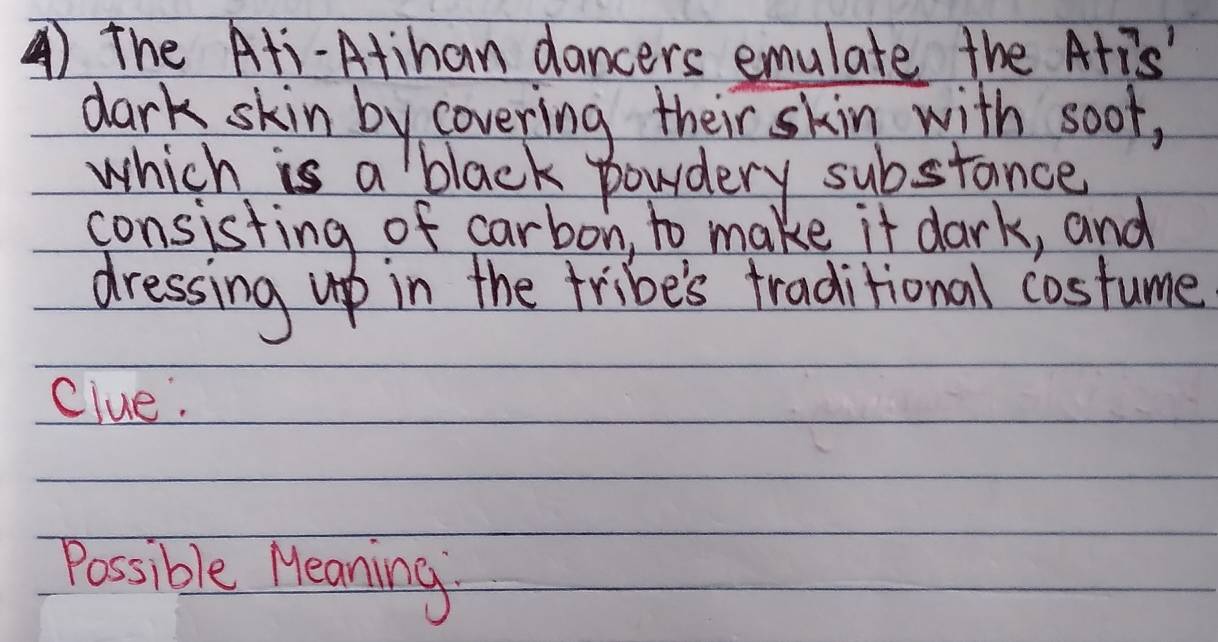 4) The Ati-Atihan dancers emulate the Atis'
dark skin by covering their skin with soot,
which is a black powdery substance
consisting of carbon, to make it dark, and
dressing up in the tribe's traditional costume.
Clue:
Possible Meaning: